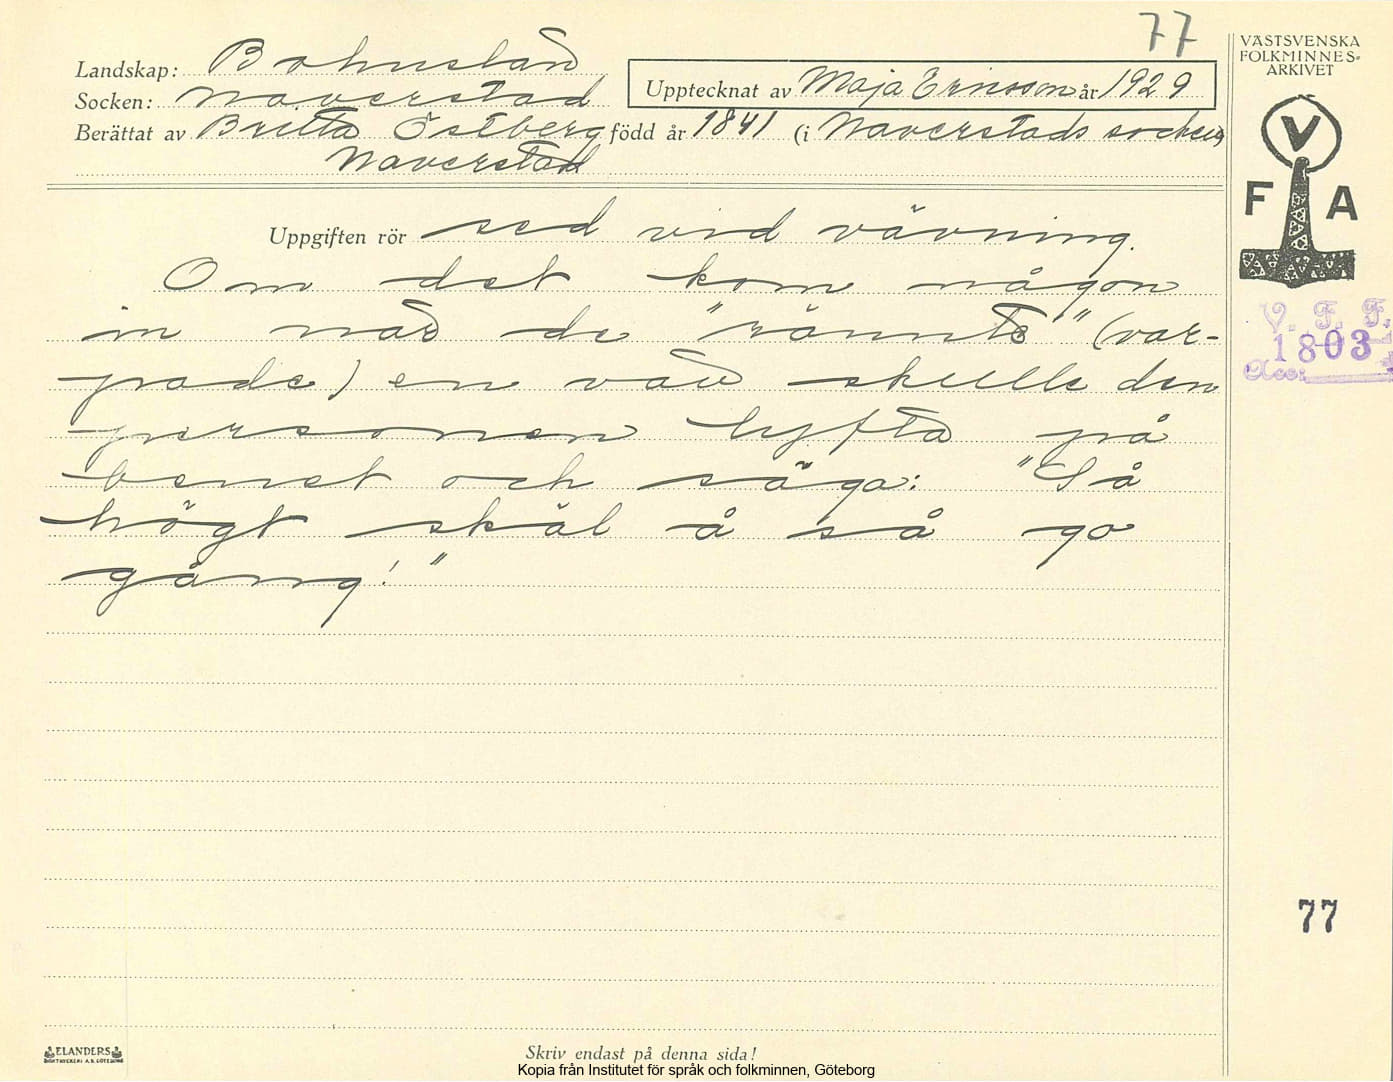 77
VÄSTSVENSKA
FOLKMINNES-
ARKIVET
Landskap: Bohuslän
Upptecknat av Maja Ericsson år 1929
Socken: Naverstad
Berättat av Britta Östberg född år 1841 (i Naverstads socken)
Naverstad
V
F A
Uppgiften rör sed vid vävning.
Om det kom någon
in när de "rännte" (var-
pade) en väv skulle den
personen lyfta på
benet och säga: "Så
högt skäl å så go
gång!"
V. F. F.
1803
Acc:
77
ELANDERS
BOKTRYCKERI A.B. GÖTEBORG
Skriv endast på denna sida!
Kopia från Institutet för språk och folkminnen, Göteborg